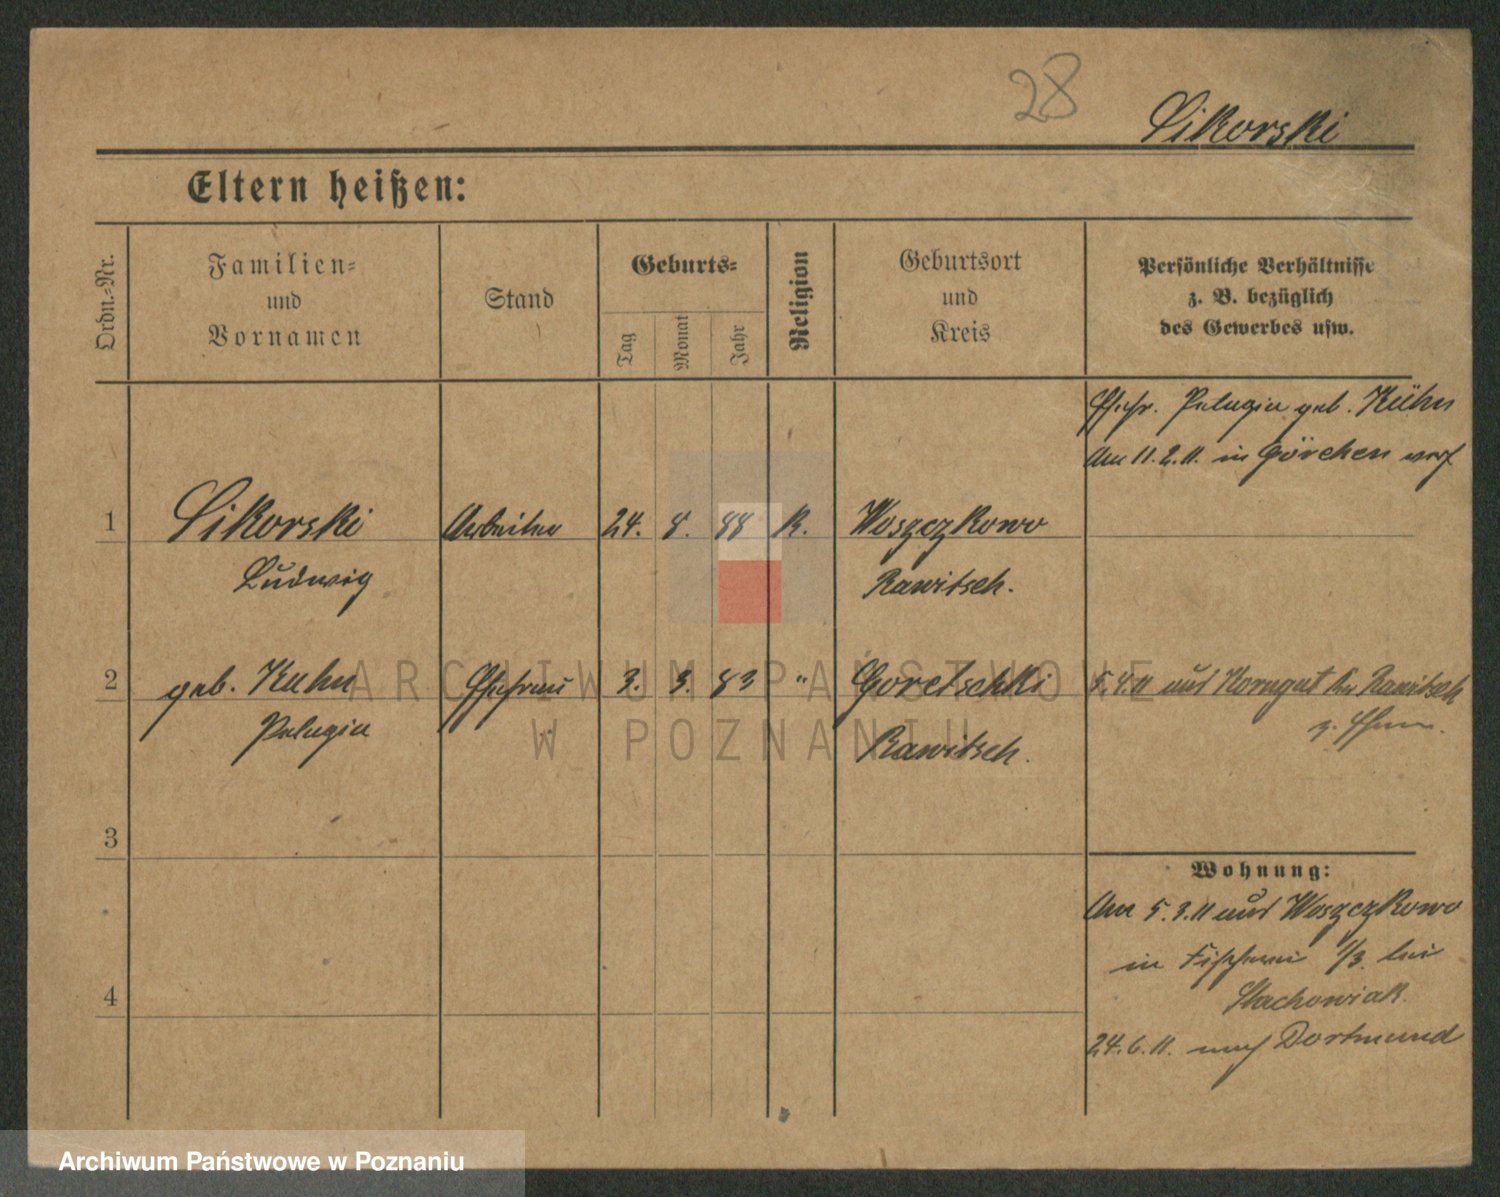 28
Sikorski
Eltern heißen:
Ordn.-Nr.
Familien-
und
Vornamen
Stand
Geburts-
Tag
Monat
Jahr
Religion
Geburtsort
und
Kreis
Persönliche Verhältnisse
z. B. bezüglich
des Gewerbes usw.
Ehefr. Pelagia geb. Kühn
Am 11.2.11. in Görchen verh
1 Sikorski Arbeiter 24. 8. 88 K. Woszczkowo
Ludwig Rawitsch.
2 geb. Kuhn Ehefrau 3. 3. 83 " Goretschki 5.4.11 aus Korngut Kr Rawitsch
Pelagia Rawitsch. z. Ehem.
3
Wohnung:
Am 5.3.11 aus Woszczkowo
in Fischerei 1/3. bei
Stachowiak.
4
24.6.11. nach Dortmund
ARCHIWUM PAŃSTWOWE
W POZNANIU
Archiwum Państwowe w Poznaniu